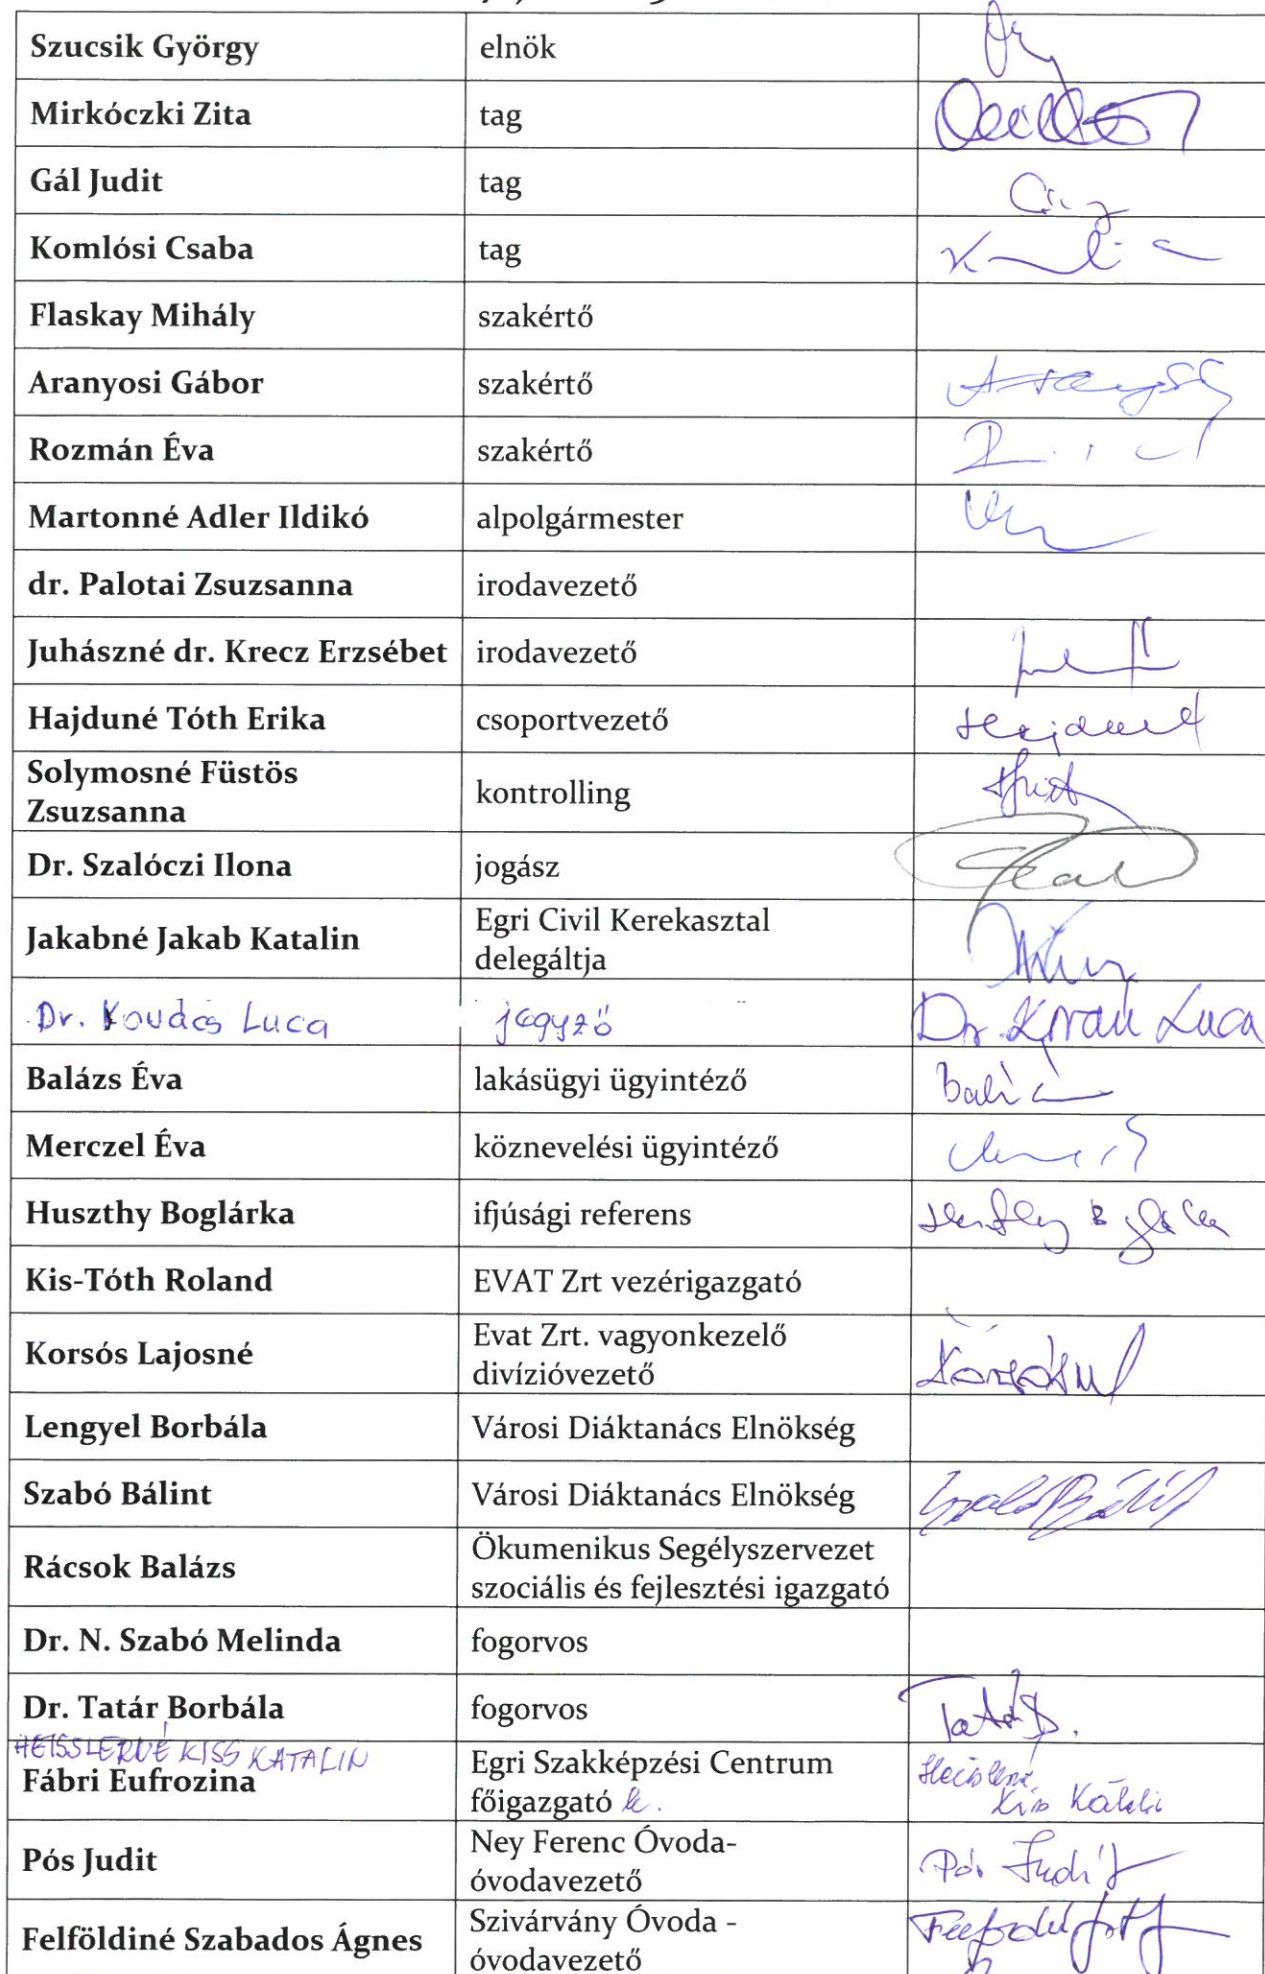 Szucsik György elnök
Mirkóczki Zita tag
Gál Judit tag
Komlósi Csaba tag
Flaskay Mihály szakértő
Aranyosi Gábor szakértő
Rozmán Éva szakértő
Martonné Adler Ildikó alpolgármester
dr. Palotai Zsuzsanna irodavezető
Juhászné dr. Krecz Erzsébet irodavezető
Hajduné Tóth Erika csoportvezető
Solymosné Füstös
Zsuzsanna
kontrolling
Dr. Szalóczi Ilona jogász
Jakabné Jakab Katalin
Egri Civil Kerekasztal
delegáltja
Dr. Kovács Luca jegyző Dr. Kovács Luca
Balázs Éva lakásügyi ügyintéző
Merczel Éva köznevelési ügyintéző
Huszthy Boglárka ifjúsági referens
Kis-Tóth Roland EVAT Zrt vezérigazgató
Korsós Lajosné
Evat Zrt. vagyonkezelő
divízióvezető
Lengyel Borbála Városi Diáktanács Elnökség
Szabó Bálint Városi Diáktanács Elnökség Szabó Bálint
Rácsok Balázs
Ökumenikus Segélyszervezet
szociális és fejlesztési igazgató
Dr. N. Szabó Melinda fogorvos
Dr. Tatár Borbála fogorvos
HEISSLERNÉ KISS KATALIN
Fábri Eufrozina
Egri Szakképzési Centrum
főigazgató h.
Heisslerné
Kiss Katalin
Pós Judit
Ney Ferenc Óvoda-
óvodavezető
Pós Judit
Felföldiné Szabados Ágnes
Szivárvány Óvoda -
óvodavezető